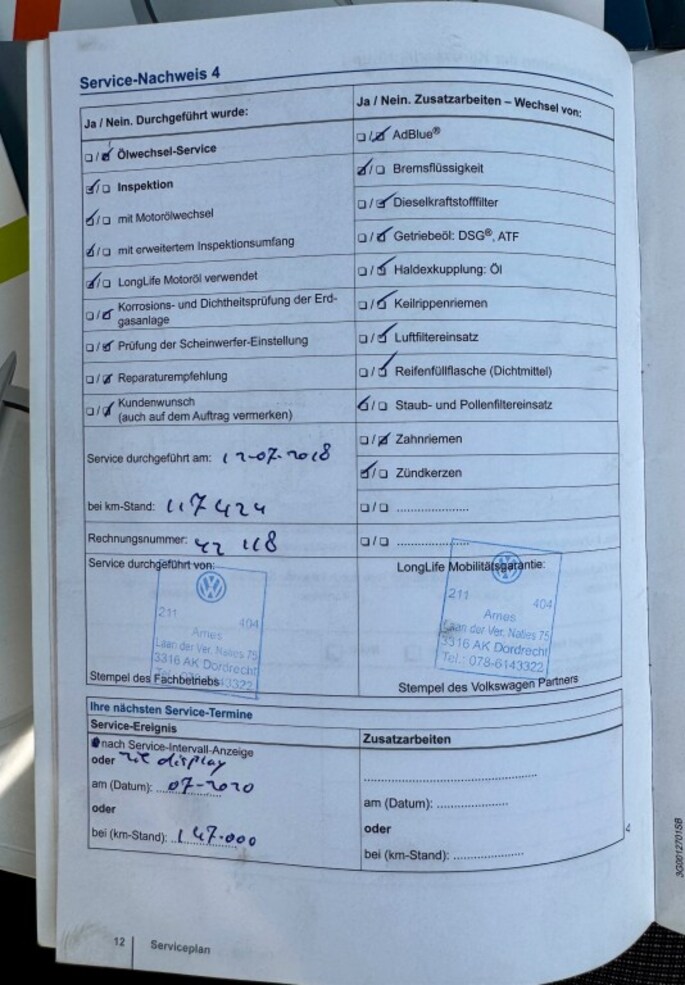 Service-Nachweis 4
Ja / Nein. Durchgeführt wurde:
Ölwechsel-Service
Inspektion
mit Motorölwechsel
mit erweitertem Inspektionsumfang
LongLife Motoröl verwendet
Korrosions- und Dichtheitsprüfung der Erd-
gasanlage
Prüfung der Scheinwerfer-Einstellung
Reparaturempfehlung
Kundenwunsch
(auch auf dem Auftrag vermerken)
Service durchgeführt am: 12-07-2018
bei km-Stand: 117424
Rechnungsnummer: 42 118
Service durchgeführt von:
211 404
Ames
Laan der Ver. Naties 75
3316 AK Dordrecht
Stempel des Fachbetriebs
Ja / Nein. Zusatzarbeiten – Wechsel von:
AdBlue®
Bremsflüssigkeit
Dieselkraftstofffilter
Getriebeöl: DSG®, ATF
Haldexkupplung: Öl
Keilrippenriemen
Luftfiltereinsatz
Reifenfüllflasche (Dichtmittel)
Staub- und Pollenfiltereinsatz
Zahnriemen
Zündkerzen
LongLife Mobilitätsgarantie:
211 404
Ames
Laan der Ver. Naties 75
3316 AK Dordrecht
Tel.: 078-6143322
Stempel des Volkswagen Partners
Ihre nächsten Service-Termine
Service-Ereignis
nach Service-Intervall-Anzeige
oder zie display
am (Datum): 07-2020
oder
bei (km-Stand): 147.000
Zusatzarbeiten
am (Datum):
oder
bei (km-Stand):
3G0012701SB
12 Serviceplan